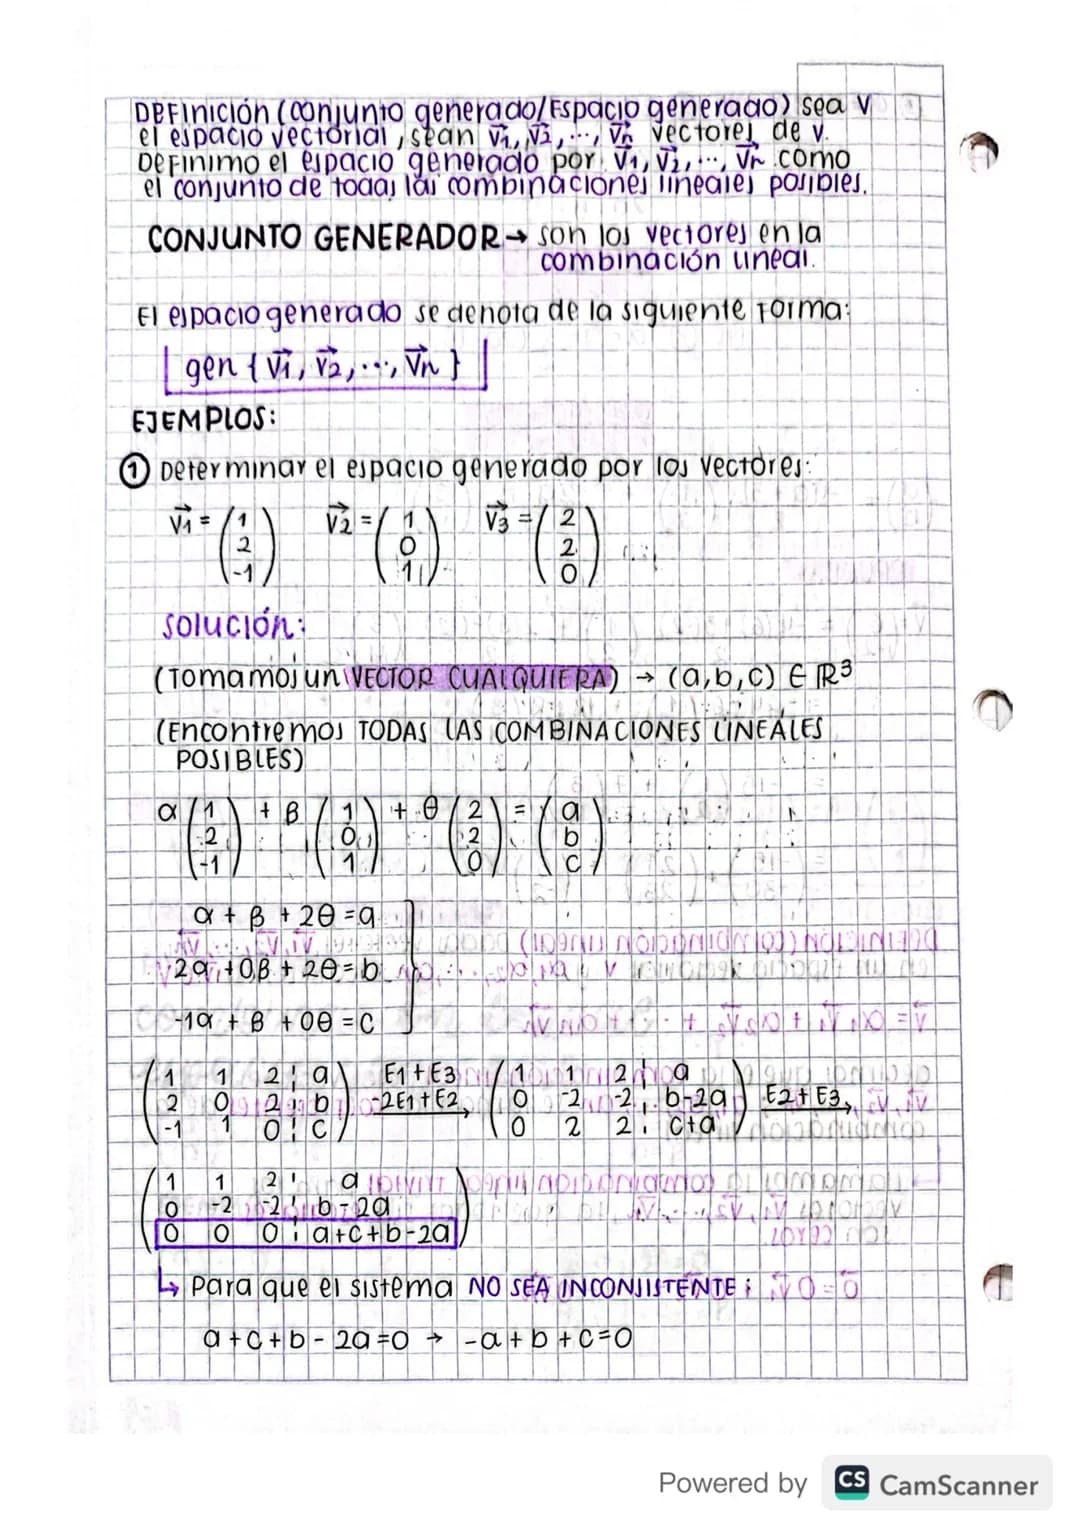 DEFINICIÓN (conjunto generado/Espacio generado) sea V
el espacio vectorial, sean v⃗1, v⃗2, ..., v⃗n vectores de v.
DEFINIMO el espacio generado por v⃗1, v⃗2, ..., v⃗n como
el conjunto de todas las combinaciones lineales posibles.
CONJUNTO GENERADOR → son los vectores en la
combinación lineal.
El espacio generado se denota de la siguiente forma:
gen { v⃗1, v⃗2, ..., v⃗n }
EJEMPLOS:
① Determinar el espacio generado por los vectores:
v⃗1 = (1 2 -1) v⃗2 = (1 0 1) v⃗3 = (2 2 0)
solución:
(Tomamos un VECTOR CUALQUIERA) → (a,b,c) ∈ ℝ³
(Encontremos TODAS LAS COMBINACIONES LINEALES
POSIBLES)
α (1 2 -1) + β (1 0 1) + θ (2 2 0) = (a b c)
α + β + 2θ = a
2α + 0β + 2θ = b
-1α + β + 0θ = c
( 1 1 2 ¦ a ) E1+E3 ( 1 1 2 ¦ a )
( 2 0 2 ¦ b ) -2E1+E2, ( 0 -2 -2 ¦ b-2a ) E2+E3,
( -1 1 0 ¦ c ) ( 0 2 2 ¦ c+a )
( 1 1 2 ¦ a )
( 0 -2 -2 ¦ b-2a )
( 0 0 0 ¦ a+c+b-2a )
↳ Para que el sistema NO SEA INCONSISTENTE:
a+c+b-2a=0 → -a+b+c=0
Powered by CS CamScanner